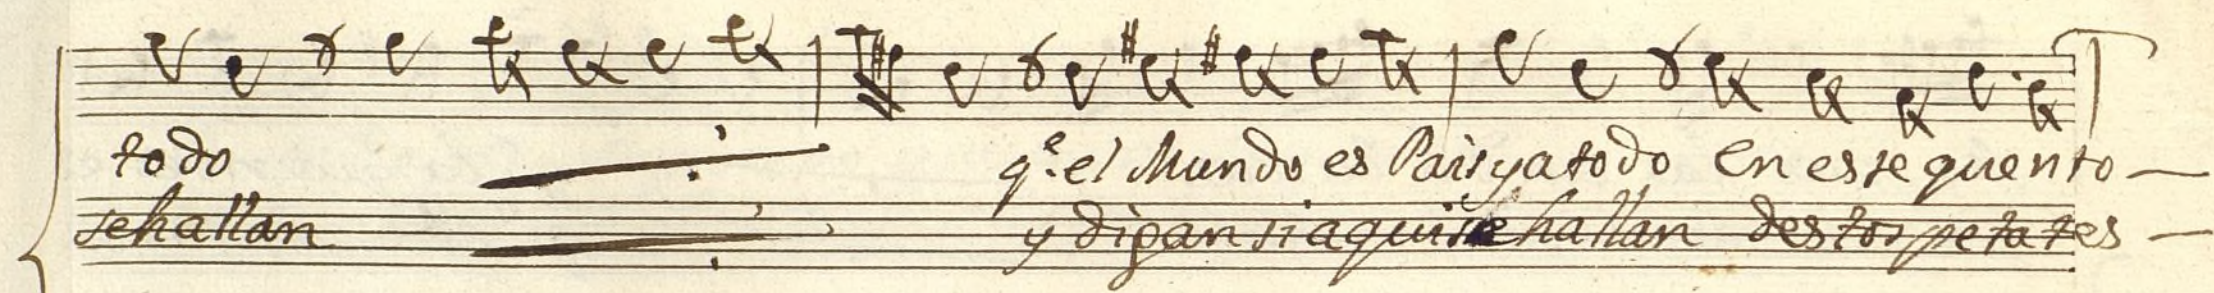 todo q.e el Mundo es Pais ya todo en este quento
se hallan y digan si aqui se hallan destos petates